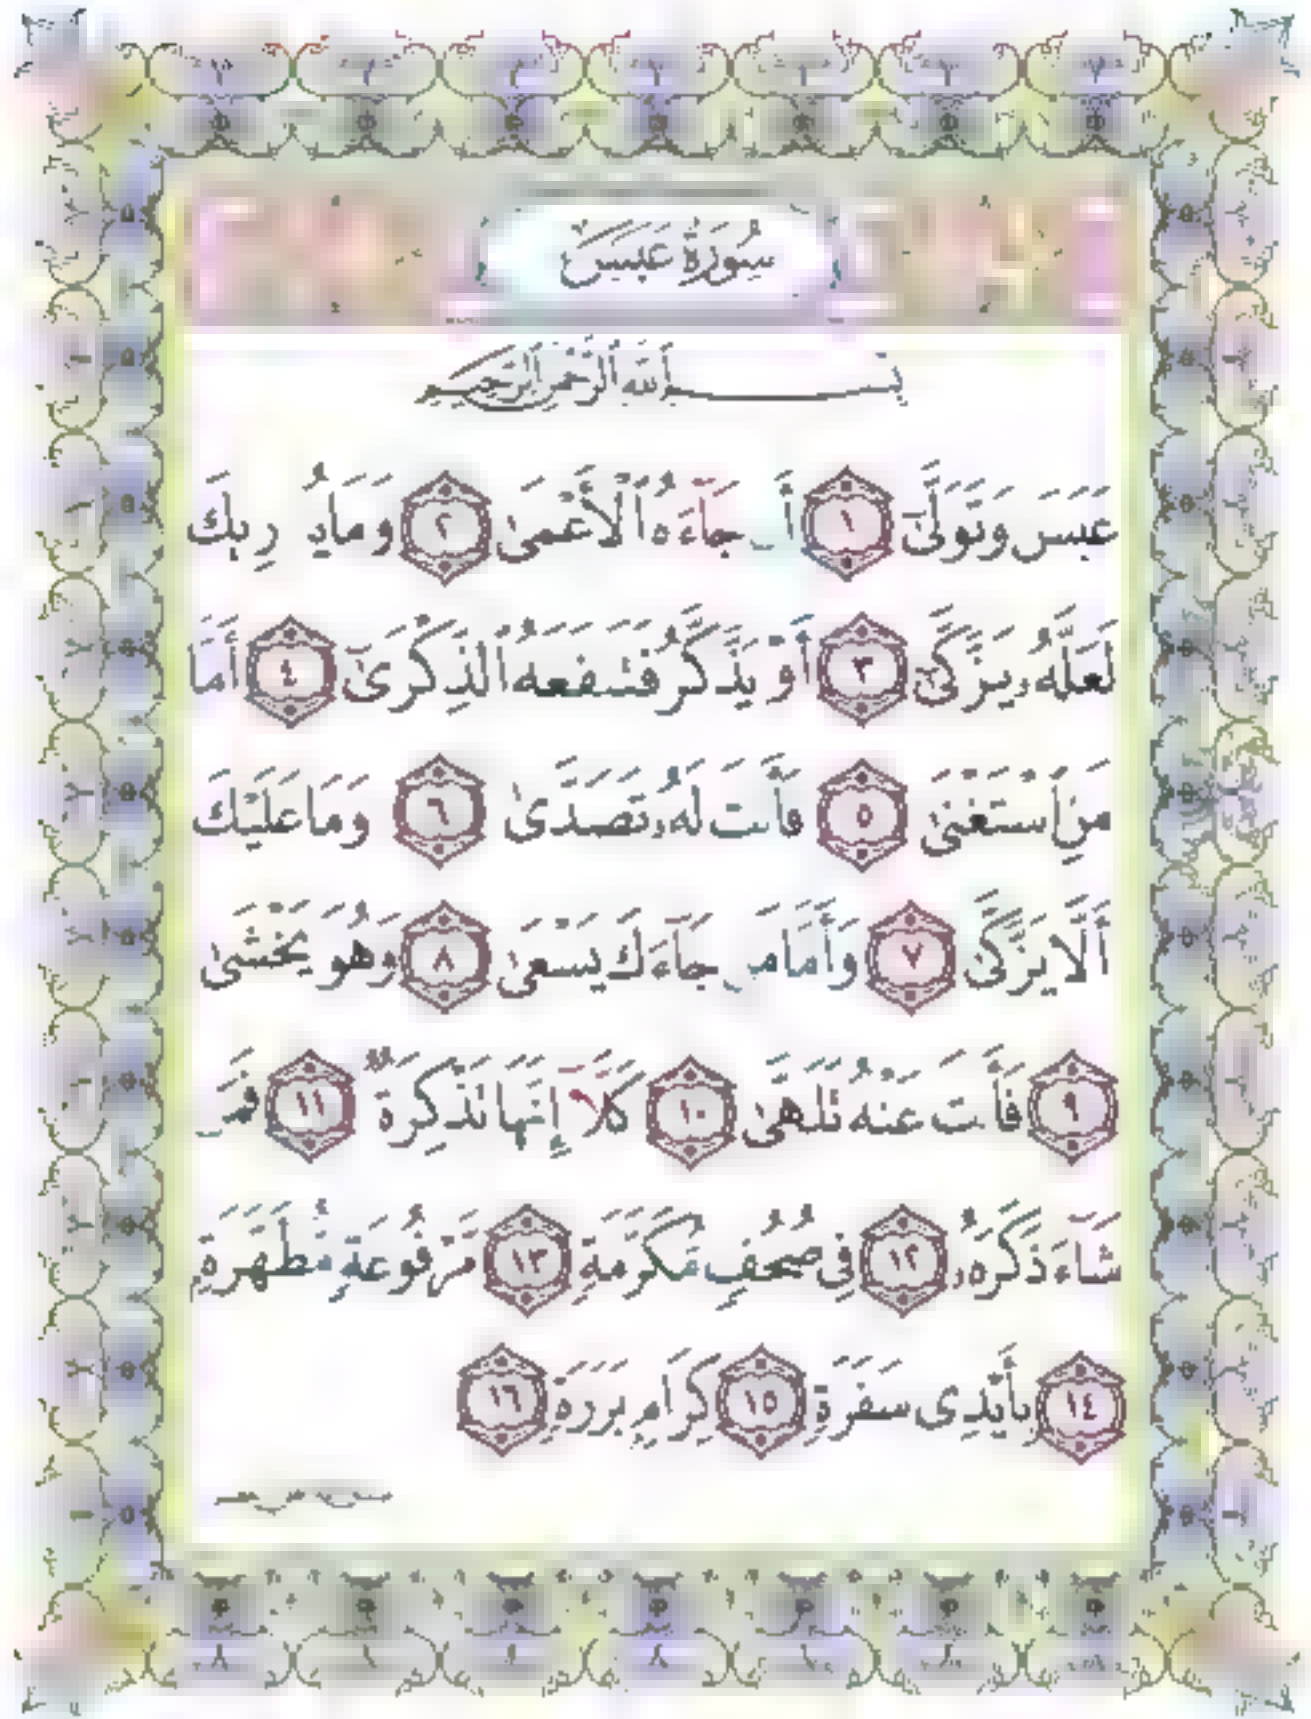 سُورَةُ عَبَسَ
بِسْمِ ٱللَّهِ ٱلرَّحْمَٰنِ ٱلرَّحِيمِ
عَبَسَ وَتَوَلَّىٰٓ ١ أَن جَآءَهُ ٱلْأَعْمَىٰ ٢ وَمَا يُدْرِيكَ
لَعَلَّهُۥ يَزَّكَّىٰٓ ٣ أَوْ يَذَّكَّرُ فَتَنفَعَهُ ٱلذِّكْرَىٰٓ ٤ أَمَّا
مَنِ ٱسْتَغْنَىٰ ٥ فَأَنتَ لَهُۥ تَصَدَّىٰ ٦ وَمَا عَلَيْكَ
أَلَّا يَزَّكَّىٰ ٧ وَأَمَّا مَن جَآءَكَ يَسْعَىٰ ٨ وَهُوَ يَخْشَىٰ
٩ فَأَنتَ عَنْهُ تَلَهَّىٰ ١٠ كَلَّآ إِنَّهَا تَذْكِرَةٌ ١١ فَمَن
شَآءَ ذَكَرَهُۥ ١٢ فِى صُحُفٍ مُّكَرَّمَةٍ ١٣ مَّرْفُوعَةٍ مُّطَهَّرَةٍۭ
١٤ بِأَيْدِى سَفَرَةٍ ١٥ كِرَامٍۭ بَرَرَةٍ ١٦